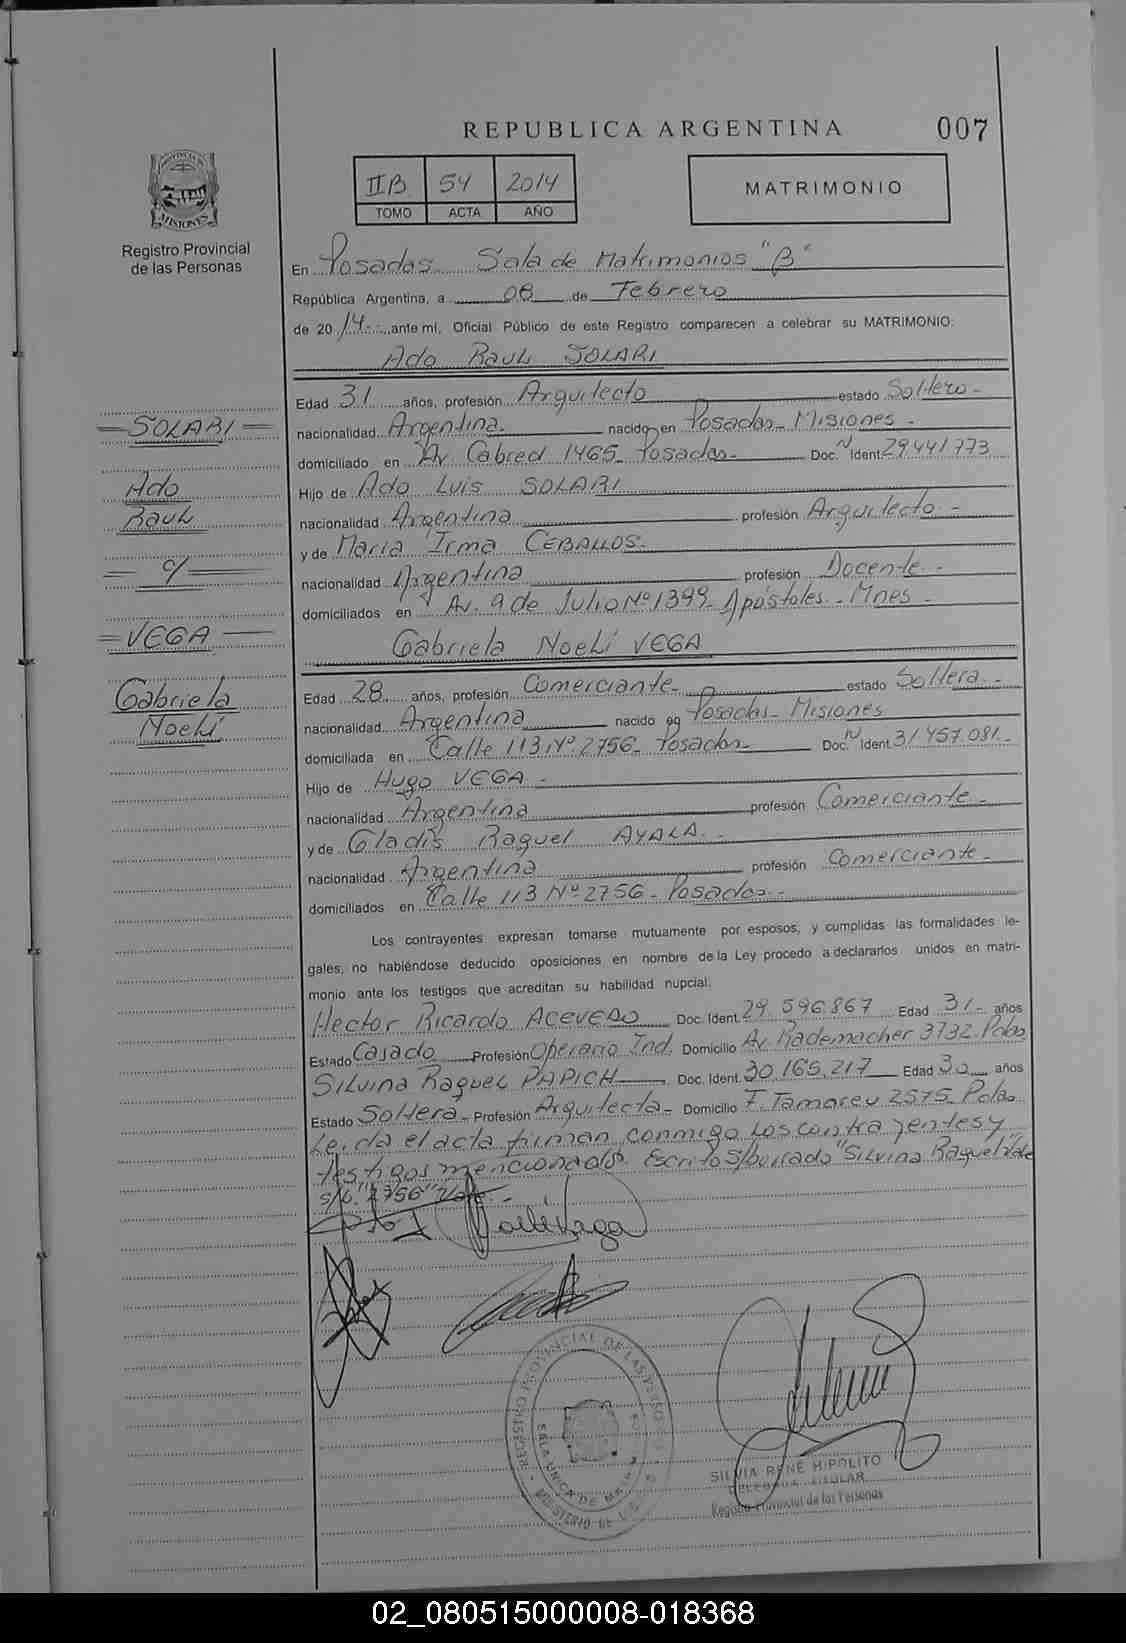 REPUBLICA ARGENTINA
007
PROVINCIA DE
MISIONES
Registro Provincial
de las Personas
IIB 54 2014
TOMO ACTA AÑO
MATRIMONIO
En Posadas Sala de Matrimonios "B"
República Argentina, a 08 de Febrero
de 2014.- ante mí, Oficial Público de este Registro comparecen a celebrar su MATRIMONIO:
Ado Raul SOLARI
Edad 31 años, profesión Arquitecto estado Soltero-
nacionalidad Argentina. nacido en Posadas- Misiones -
domiciliado en Av. Cabred 1465- Posadas- Doc. N Ident 29441773
Hijo de Ado Luis SOLARI
nacionalidad Argentina profesión Arquitecto -
y de Maria Irma CEBALLOS.
nacionalidad Argentina profesión Docente -
domiciliados en Av. 9 de Julio Nº 1399- Apóstoles - Mnes -
Gabriela Noelí VEGA
Edad 28 años, profesión Comerciante- estado Soltera -
nacionalidad Argentina nacido en Posadas- Misiones
domiciliada en Calle 113 Nº 2756- Posadas- Doc. N Ident 31457.081-
Hijo de Hugo VEGA -
nacionalidad Argentina profesión Comerciante -
y de Gladis Raquel AYALA. -
nacionalidad Argentina profesión Comerciante -
domiciliados en Calle 113 Nº 2756 - Posadas -
Los contrayentes expresan tomarse mutuamente por esposos, y cumplidas las formalidades le-
gales, no habiéndose deducido oposiciones en nombre de la Ley procedo a declararlos unidos en matri-
monio ante los testigos que acreditan su habilidad nupcial:
Hector Ricardo ACEVEDO Doc. Ident. 29.596.867 Edad 31- años
Estado Casado Profesión Operario Ind. Domicilio Av. Rademacher 3732-Pdas
Silvina Raquel PAPICH Doc. Ident. 30.165.217 Edad 30 años
Estado Soltera- Profesión Arquitecta- Domicilio F. Tamareu 2575- Pdas
Leida el acta firman conmigo los contrayentes y
testigos mencionados. Escrito s/borrado "Silvina Raquel" Vale
s/b. "2756" Vale -
= SOLARI =
Ado
Raul
= c/ =
= VEGA -
Gabriela
Noelí
Noelí Vega
REGISTRO PROVINCIAL DE LAS PERSONAS
SALA UNICA DE
MINISTERIO DE
SILVIA RENE HIPOLITO
DELEGADA TITULAR
Registro Provincial de las Personas
02_080515000008-018368